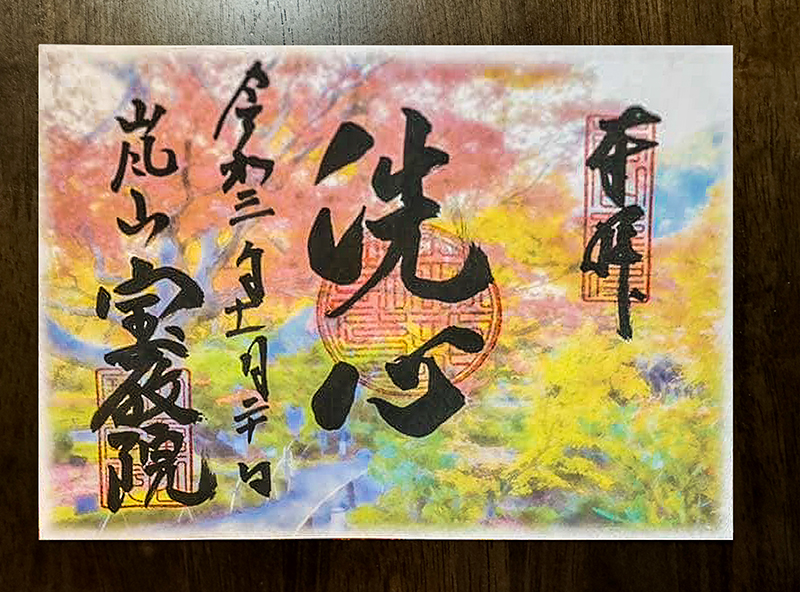 奉拝
洗心
令和三年十一月二十日
嵐山 宝厳院